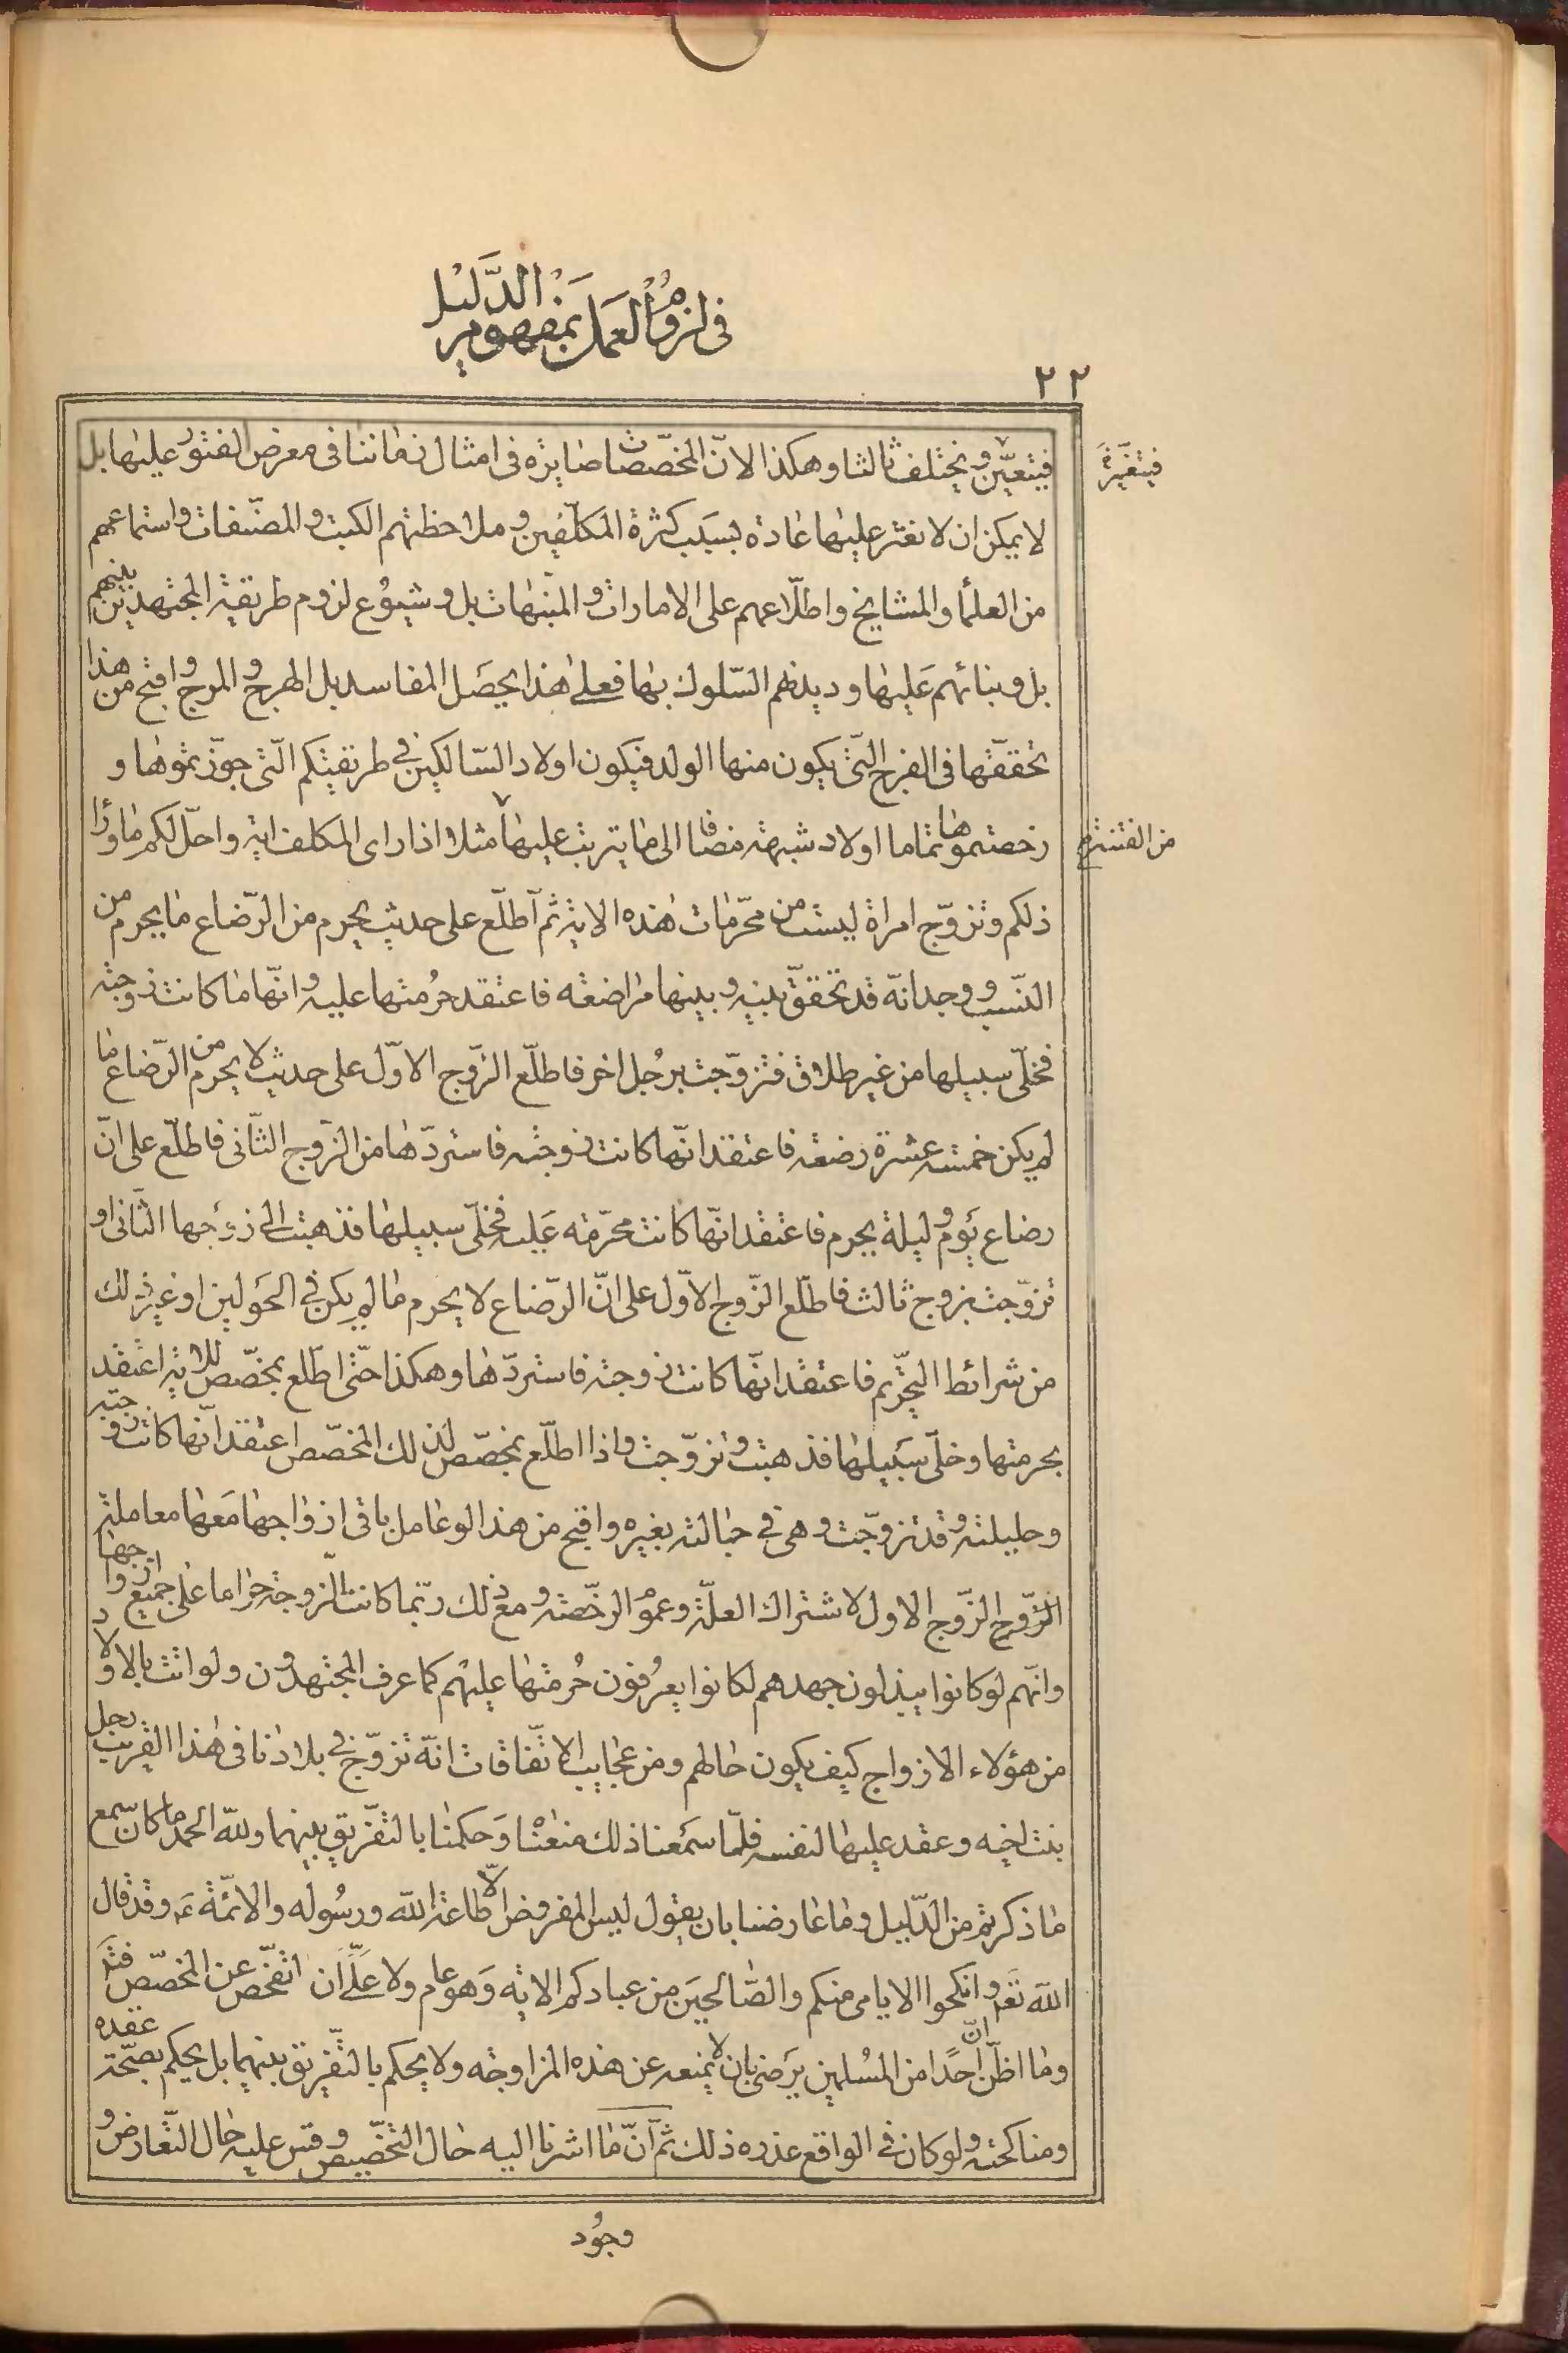 فى لزوم العمل بمفهوم الدليل
٢٢
فيتعيّن و يختلف ثالثا و هكذا الانّ المخصّصات صايرة فى امثال زماننا فى معرض العثور عليها بل
فيتغيّرة
لا يمكن ان لا نعثر عليها عادة بسبب كثرة المكلّفين و ملاحظتهم الكتب و المصنّفات و استماعهم
من العلمآ و المشايخ و اطلّاعهم على الامارات و المنبّهات بل و شيوع لزوم طريقة المجتهدين بينهم
بل و بنائهم عليها و ديدنهم السّلوك بها فعلى هذا يحصل المفاسد بل الهرج و المرج و اقبح من هذا
تحققّها فى الفرج الّتى يكون منها الولد فيكون اولاد السّالكين فى طريقتكم الّتى جوّزتموها و
رخصتموها تماما اولاد شبهة مضافا الى ما يترتب عليها مثلا اذا راى المكلف اية و احلّ لكم ما ورآء
من الفتنة
ذلكم و تزوّج امراة ليست من محرّمات هذه الاية ثم اطلّع على حديث يحرم من الرّضاع ما يحرم من
النّسب و وجد انّه قد تحققّ بينه و بينها مراضعه فاعتقد حرمتها عليه و انّها ما كانت زوجته
فخلّى سبيلها من غير طلاق فتزوّجت برجل اخر فاطلّع الزّوج الاوّل على حديث لا يحرم من الرّضاع ما
لم يكن خمسه عشرة رضعه فاعتقد انّها كانت زوجته فاستردّها من الزّوج الثّانى فاطلّع على انّ
رضاع يوم و ليلة يحرم فاعتقد انّها كانت محرّمه عليه فخلّى سبيلها فذهبت الى زوجها الثّانى او
تزوّجت بزوج ثالث فاطلّع الزّوج الاوّل على انّ الرّضاع لا يحرم ما لم يكن فى الحولين او غير ذلك
من شرائط التحّريم فاعتقد انّها كانت زوجته فاستردّها و هكذا حتّى اطّلع بمخصّص للاية اعتقد
بحرمتها و خلّى سبيلها فذهبت و تزوّجت و اذا اطلّع بمخصّص لذلك المخصّص اعتقد انّها كانت زوجته
و حليلته و قد تزوّجت و هى فى حبالته بغيره و اقبح من هذا لو عامل باقى ازواجها معها معاملة
الزّوج الزّوج الاول لاشتراك العلّة و عموم الرخّصة و مع ذلك ربّما كانت الزوجة حراما على جميع ازواجها
و انّهم لو كانوا يبذلون جهدهم لكانوا يعرفون حرمتها عليهم كما عرف المجتهدون و لو اتت بالاولاد
من هؤلاء الازواج كيف يكون حالهم و من عجايب الاتّفاقات انّه تزوّج فى بلادنا فى هذا القريب رجل
بنت اخيه و عقد عليها لنفسه فلمّا سمعنا ذلك منعنا و حكمنا بالتفّريق بينهما و للّه الحمد ما كان سمع
ما ذكرتم من الدّليل و ما عارضنا بان يقول ليس المفروض الّا طاعة اللّه و رسوله و الائمّة ع و قد قال
اللّه تعم و انكحوا الايامى منكم و الصّالحين من عبادكم الاية و هو عام و لا علىّ ان اتفحّص عن المخصّص
و ما اظنّ انّ احدا من المسلمين يرضى بان لا يمنعه عن هذه المزاوجه و لا يحكم بالتفّريق بينهما بل يحكم بصحّة عقده
و مناكحته و لو كان فى الواقع عذره ذلك ثم انّ ما اشرنا اليه حال التخّصيص و قس عليه حال التّعارض و
وجود